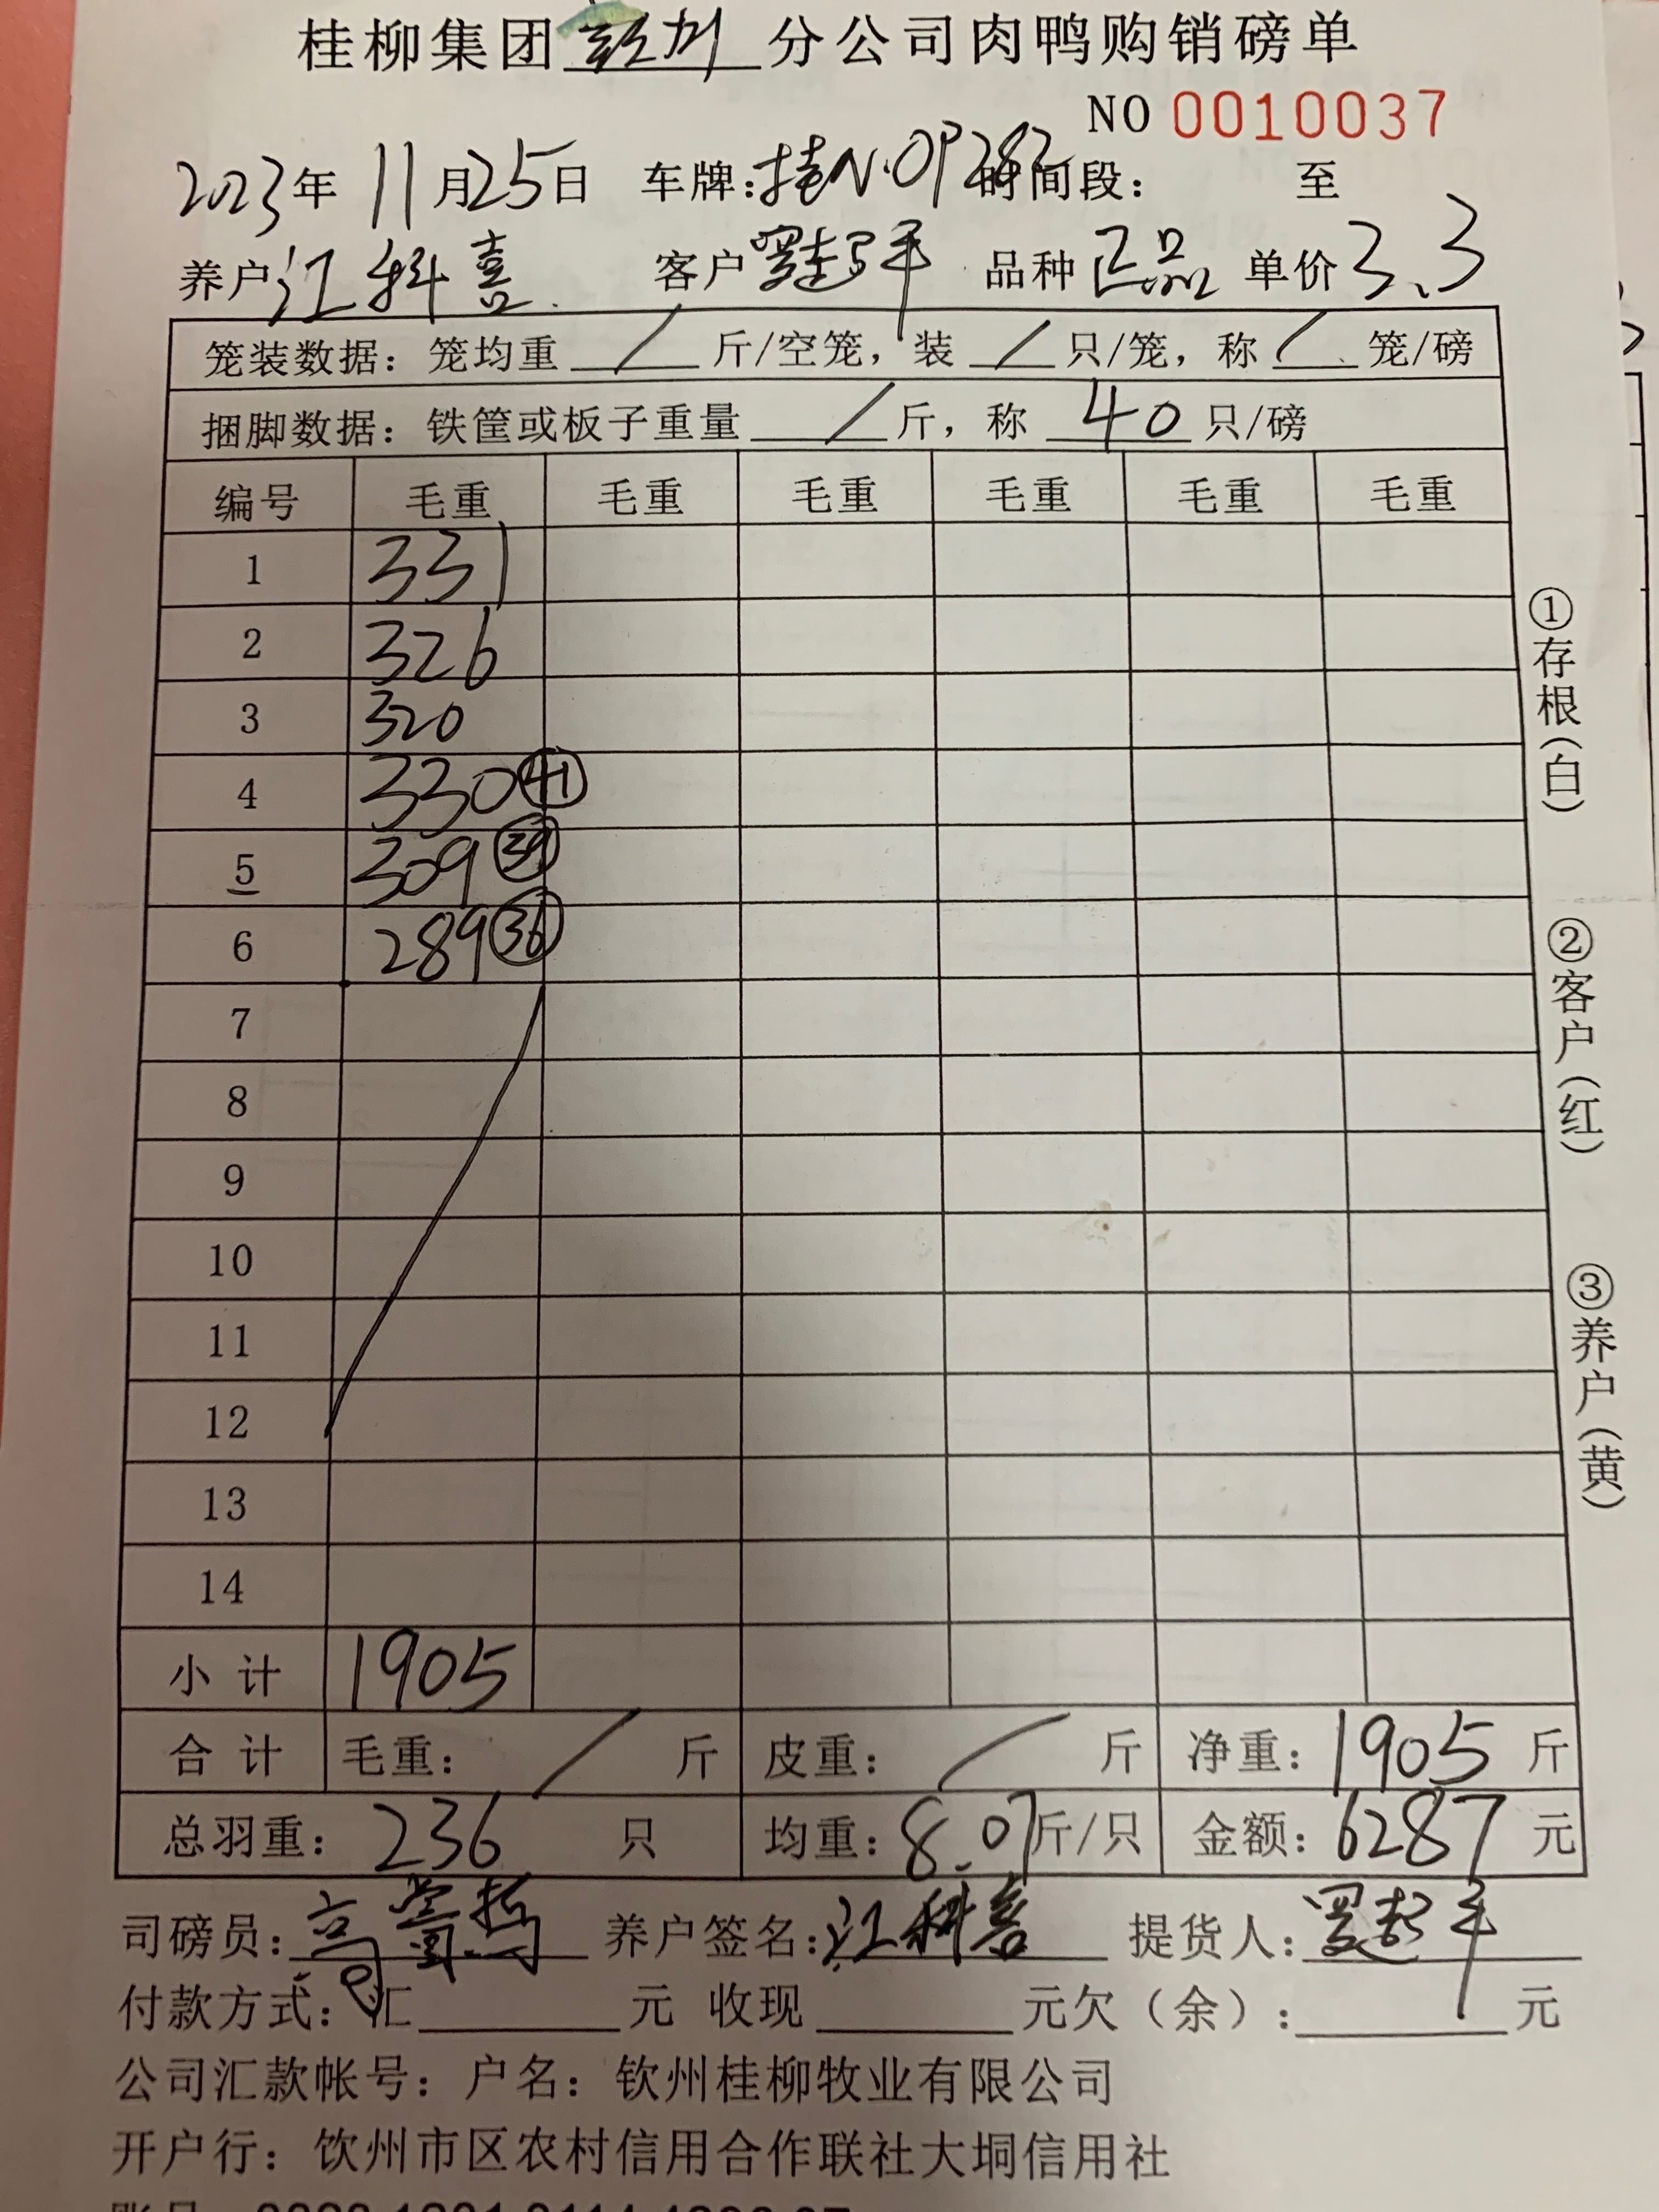 桂柳集团 钦州 分公司肉鸭购销磅单
NO 0010037
2023年 11月25日 车牌:桂N·0P282 时间段: 至
养户 江科喜 客户 品种 正品 单价 3.3
笼装数据: 笼均重 / 斤/空笼, 装 / 只/笼, 称 / 笼/磅
捆脚数据: 铁筐或板子重量 / 斤, 称 40 只/磅
编号 毛重 毛重 毛重 毛重 毛重 毛重
1 331
2 326
3 320
4 330 41
5 309 39
6 289 36
7
8
9
10
11
12
13
14
小计 1905
合计 毛重: / 斤 皮重: / 斤 净重: 1905 斤
总羽重: 236 只 均重: 8.07斤/只 金额: 6287 元
司磅员: 养户签名: 江科喜 提货人:
付款方式: 汇 元 收现 元欠(余): 元
公司汇款帐号: 户名: 钦州桂柳牧业有限公司
开户行: 钦州市区农村信用合作联社大垌信用社
①存根(白)
②客户(红)
③养户(黄)